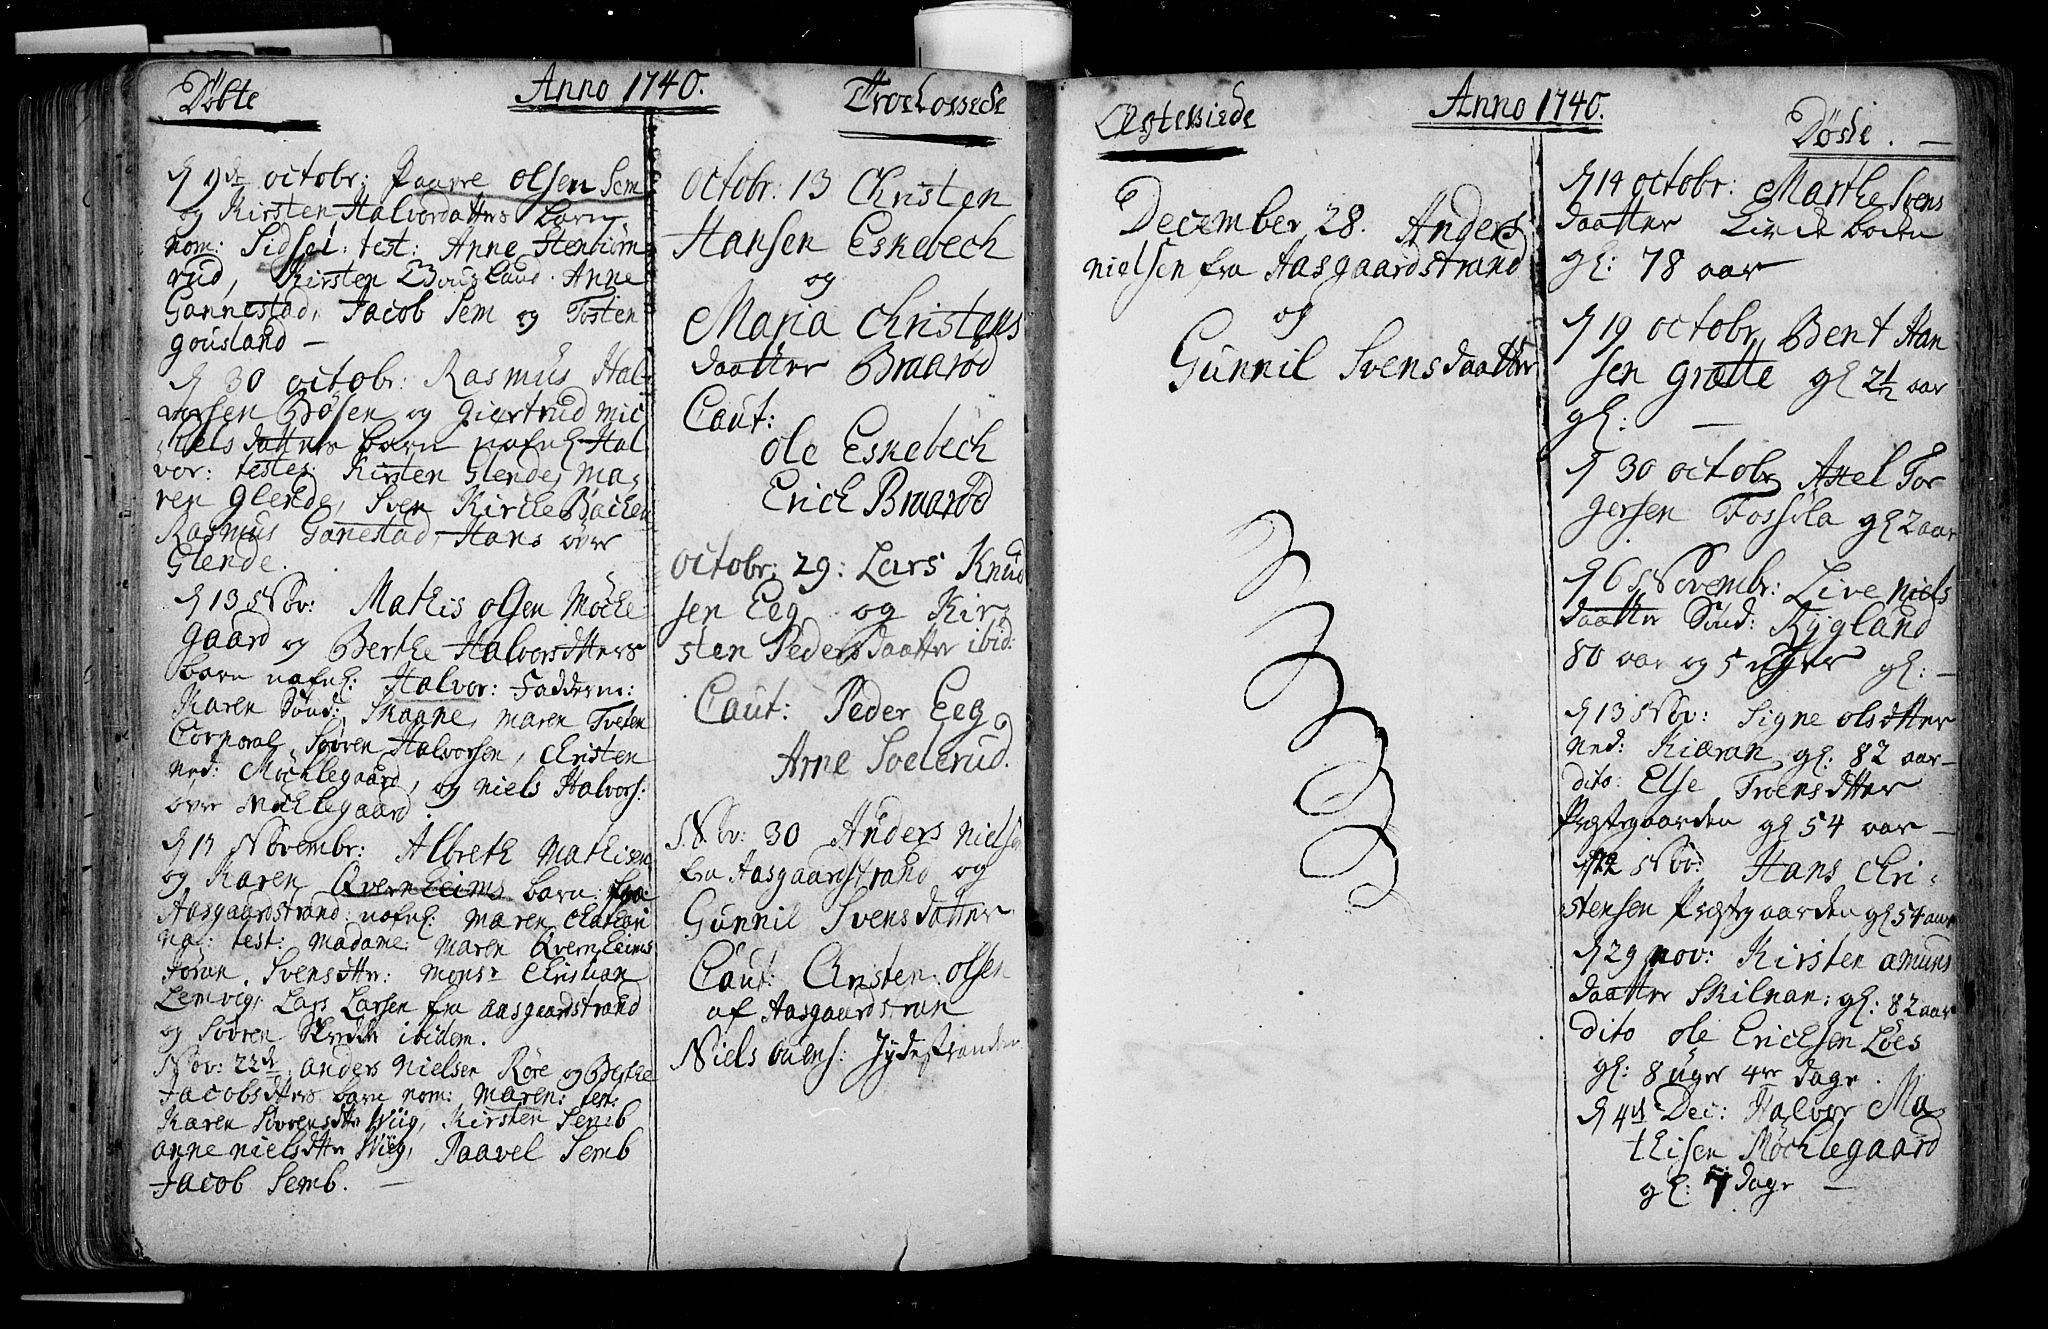 Döbte
Anno 1740.
d 9de octobr: Paavre olsen Sem
og Kirsten Halvordatters barn
nom: Sidsel: test: Anne Stenbiörn
rud, Kirsten Anne
Gannestad, Jacob Sem og Tosten
gousland –
d 30 octobr: Rasmus Hal
vorsen Bösen og Giertrud Mic
hels datters barn nafnl: Hal
vor: testes: Kirsten Glende, Ma-
ren Glende, Sven Kirchebachen
Rasmus Ganestad, Hans over
Glende.
d 13 Nov: Mathis olsen Möchle
gaard og Berthe Halvorsdtters
barn nafnl: Halvor: Fadderne:
Karen Sönd: Skaane, maren Tveten
Corporal Sövren Halvorsen, christen
Ned: Möchlegaard, og niels Halvors:
over Möchlegaard.
d 13 Novembr: Albreth Mathisen
og Karen Qvernheims barn fra
Aasgaardstrand: nafnl: Maren Chathari
na: test: Madame: Maren Qvernheims
Jöran Svensdtter: Monsr Christian
Lemvig, Lars Larsen fra aasgaardstrand
og Sövren ibidem.
Nov: 22de anders Nielsen Röre og Berthe
Jacobsdtters barn nom: Maren: test:
Karen Sörensdtter Wiig, Kirsten Semb
anne nielsdtter Wiig, Paavel Semb
Jacob Semb. –
Troelovede
octobr: 13 Christen
Hansen Eskebech
og
Maria christens
daatter Braaröd
Caut:
ole Eskebech
Erich Braaröd
octobr: 29: Lars Knud
sen Eeg og Kir
sten Pedersdaatter ibid:
Caut: Peder Eeg
Arne Solerud.
Nov: 30 Anders niels:
fra Aasgaardstrand og
Gunnil Svensdatter
Caut: Christen olsen
af Aasgaardstran
Niels Jydestranden
Ægteviede
Anno 1740.
December 28. Anders
nielsen fra Aasgaardstrand
og
Gunnil Svensdaatter
Döde. –
d 14 octobr: Marthe Svens
daatter Lindeboden
gl: 78 aar
d 19 octobr Bent Han
sen grætte gl 2½ aar
gl: –
d 30 octobr Axel Tor
gersen Fossöla gl 2 aar
d 6 Novembr: Live niels
daatter Sönd: Rygland
80 aar og 5 uger gl: –
d 13 Nov: Signe olsdtter
Ned: Kiæran gl: 82 aar –
dito: Else Troensdtter
Præstegaarden gl 54 aar –
d 22 Nov: Hans Chri-
stensen Præstgaarden gl 54 aar
d 29 nov: Kirsten amuns
daatter Skilnan: gl: 82 aar
dito ole Erichsen Löes
gl: 8 uger 4re dage.
d 4de Dec: Halvor Ma
thisen Möchlegaard
gl: 7 dage –